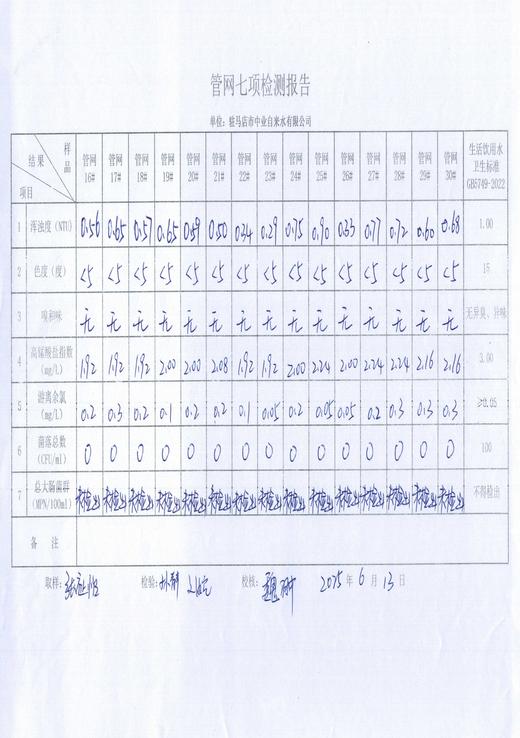 管网七项检测报告
单位：驻马店市中业自来水有限公司
样品 结果 项目 管网16# 管网17# 管网18# 管网19# 管网20# 管网21# 管网22# 管网23# 管网24# 管网25# 管网26# 管网27# 管网28# 管网29# 管网30# 生活饮用水卫生标准GB5749-2022
1 浑浊度（NTU） 0.56 0.65 0.57 0.65 0.59 0.50 0.34 0.29 0.75 0.90 0.33 0.77 0.72 0.60 0.68 1.00
2 色度（度） <5 <5 <5 <5 <5 <5 <5 <5 <5 <5 <5 <5 <5 <5 <5 15
3 嗅和味 无 无 无 无 无 无 无 无 无 无 无 无 无 无 无 无异臭、异味
4 高锰酸盐指数（mg/L） 1.92 1.92 1.92 2.00 2.00 2.08 1.92 1.92 2.00 2.24 2.00 2.24 2.24 2.16 2.16 3.00
5 游离余氯（mg/L） 0.2 0.3 0.2 0.1 0.2 0.2 0.1 0.05 0.2 0.05 0.05 0.2 0.3 0.3 0.3 ≥0.05
6 菌落总数（CFU/ml） 0 0 0 0 0 0 0 0 0 0 0 0 0 0 0 100
7 总大肠菌群（MPN/100ml） 未检出 未检出 未检出 未检出 未检出 未检出 未检出 未检出 未检出 未检出 未检出 未检出 未检出 未检出 未检出 不得检出
备 注
取样： 检验： 校核： 2025年6月13日